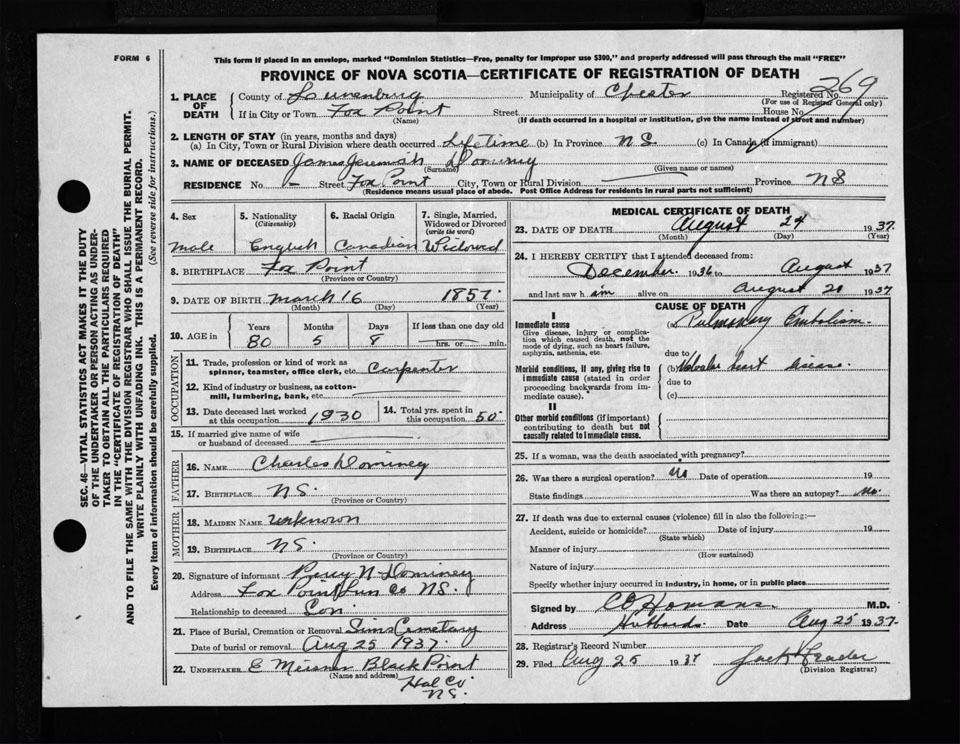 FORM 6
This form if placed in an envelope, marked "Dominion Statistics—Free, penalty for improper use $300," and properly addressed will pass through the mail "FREE"
PROVINCE OF NOVA SCOTIA—CERTIFICATE OF REGISTRATION OF DEATH
SEC. 46—VITAL STATISTICS ACT MAKES IT THE DUTY
OF THE UNDERTAKER OR PERSON ACTING AS UNDER-
TAKER TO OBTAIN ALL THE PARTICULARS REQUIRED
IN THE "CERTIFICATE OF REGISTRATION OF DEATH"
AND TO FILE THE SAME WITH THE DIVISION REGISTRAR WHO SHALL ISSUE THE BURIAL PERMIT.
WRITE PLAINLY WITH UNFADING INK. THIS IS A PERMANENT RECORD.
Every item of information should be carefully supplied. (See reverse side for instructions.)
1. PLACE OF DEATH
County of Lunenburg Municipality of Chester Registered No. 269
(For use of Registrar General only)
If in City or Town Fox Point Street House No.
(Name) (If death occurred in a hospital or institution, give the name instead of street and number)
2. LENGTH OF STAY (in years, months and days)
(a) In City, Town or Rural Division where death occurred Lifetime (b) In Province N S (c) In Canada (if immigrant)
3. NAME OF DECEASED James Jeremiah Dominey
(Surname) (Given name or names)
RESIDENCE No. – Street Fox Point City, Town or Rural Division Province N S
(Residence means usual place of abode. Post Office Address for residents in rural parts not sufficient)
4. Sex 5. Nationality (Citizenship) 6. Racial Origin 7. Single, Married, Widowed or Divorced (write the word)
male English Canadian Widowed
8. BIRTHPLACE Fox Point
(Province or Country)
9. DATE OF BIRTH March 16 1857
(Month) (Day) (Year)
10. AGE in Years Months Days If less than one day old
80 5 8 hrs. or min.
OCCUPATION
11. Trade, profession or kind of work as
spinner, teamster, office clerk, etc. Carpenter
12. Kind of industry or business, as cotton-
mill, lumbering, bank, etc.
13. Date deceased last worked at this occupation 1930 14. Total yrs. spent in this occupation 50
15. If married give name of wife
or husband of deceased
FATHER
16. NAME Charles Dominey
17. BIRTHPLACE N S.
(Province or Country)
MOTHER
18. MAIDEN NAME unknown
19. BIRTHPLACE N S.
(Province or Country)
20. Signature of informant Percy N Dominey
Address Fox Point Lun Co N S.
Relationship to deceased Son
21. Place of Burial, Cremation or Removal Sims Cemetary
Date of burial or removal Aug 25 1937
22. UNDERTAKER E Meisner Black Point
(Name and address) Hal Co
N S.
MEDICAL CERTIFICATE OF DEATH
23. DATE OF DEATH August 24 1937
(Month) (Day) (Year)
24. I HEREBY CERTIFY that I attended deceased from:
December 1936 to August 1937
and last saw him alive on August 20 1937
CAUSE OF DEATH
I
Immediate cause
Give disease, injury or complica-
tion which caused death, not the
mode of dying, such as heart failure,
asphyxia, asthenia, etc.
(a) Pulmonary Embolism
due to
Morbid conditions, if any, giving rise to
immediate cause (stated in order
proceeding backwards from im-
mediate cause).
(b) Valvular heart disease.
due to
(c)
II
Other morbid conditions (if important)
contributing to death but not
causally related to immediate cause.
25. If a woman, was the death associated with pregnancy?
26. Was there a surgical operation? No Date of operation 19
State findings Was there an autopsy? No.
27. If death was due to external causes (violence) fill in also the following:—
Accident, suicide or homicide? Date of injury 19
(State which)
Manner of injury
(How sustained)
Nature of injury
Specify whether injury occurred in industry, in home, or in public place
Signed by C O Homans. M.D.
Address Hubbards. Date Aug 25 1937
28. Registrar's Record Number
29. Filed Aug 25 1937 Jack
(Division Registrar)